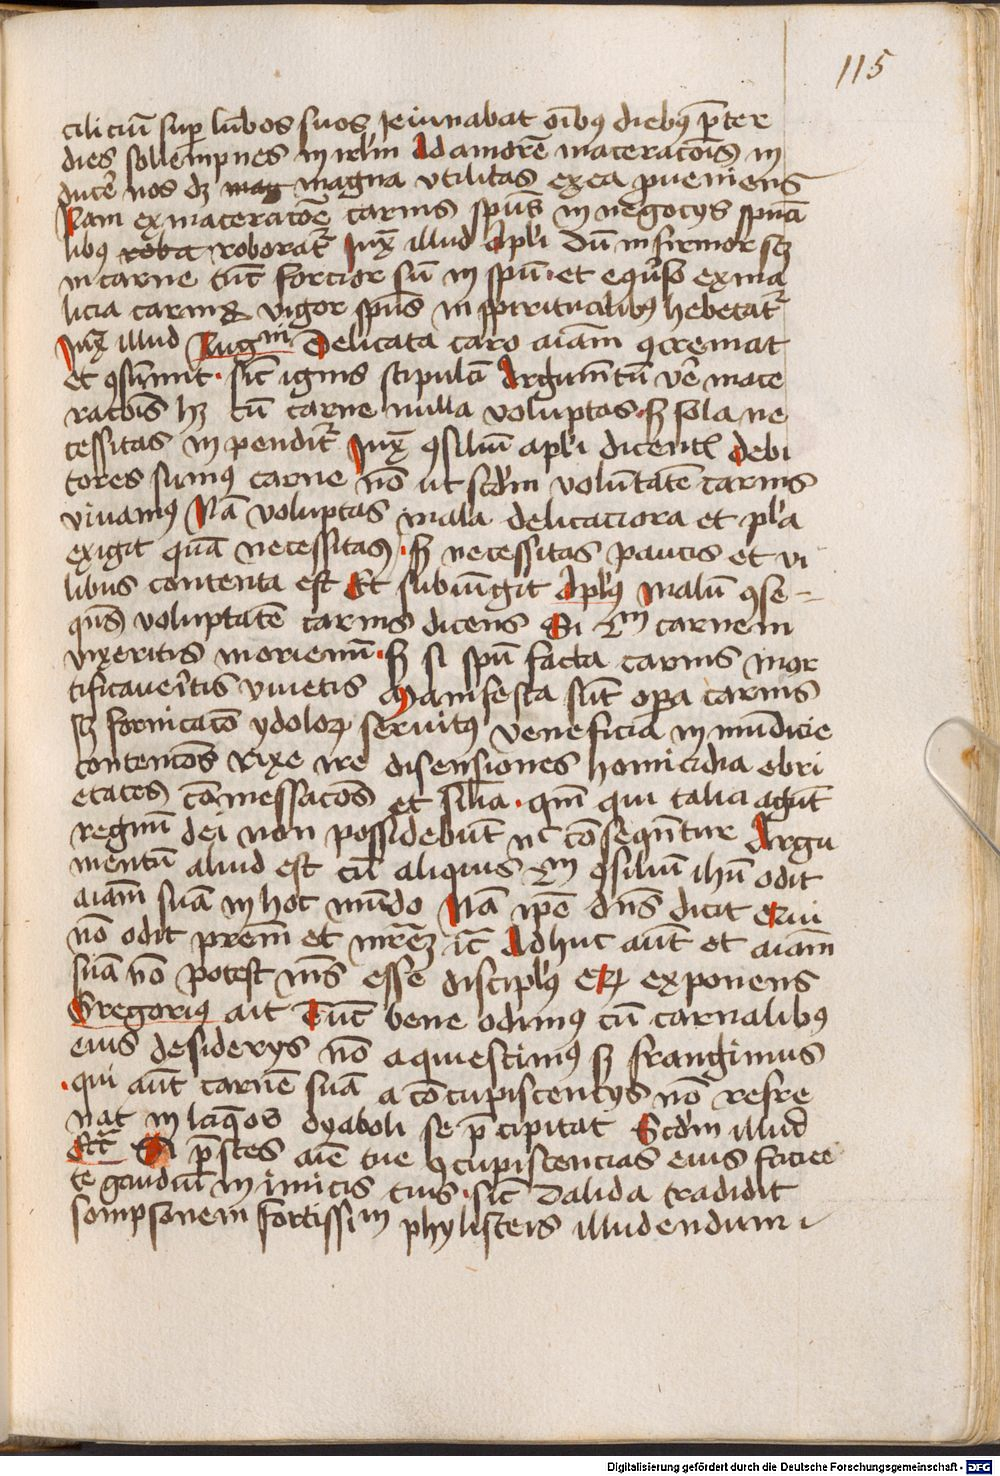 115
ciliciū sup̱ lūbos suos Ieiunabat oībꝰ diebꝰ p̄ter
dies sollempnes in irl'm Ad amorē maceracōis in
ducē nos dꝫ mag magna vtilitas ex ea ꝓueniens
Nam ex maceracōe carnis spūs in negocijs spūa
libꝰ roba roborat᷑ Iux̄ illud apl'i Dū infirmor scꝫ
in carne tūc forcior sū in spū · et eqͦuso ex ma
licia carnis vigor spūs in spiritualibꝰ hebetat᷑
Iux̄ illud Augm Delicata caro aīam ꝯcremat
et ꝯsūmit · sic̄ ignis stipulā Argum̄tū vē mace
racōis hꝫ cū carne nulla voluptas · sꝫ sola ne
cessitas in pendit᷑ Iux̄ ꝯsiliū apl'i dicent̄ debi
tores sumꝰ carne nō ut scd'm volūtatē carnis
viuamꝰ Nā voluptas mala delicaciora et pl'a
exigit quā necessitas · sꝫ necessitas paucis et vi
libus contenta est Et subiūgit Apl'us malū ꝯse-
quēs voluptatē carnis dicens Si 2m carnem
vixeritis moriemī · sꝫ si spū facta carnis mor
tificauēitis viuetis Manifesta sūt opa carnis
scꝫ fornicacō ydoloꝝ seruitꝰ veneficia inmūdicie
contencōes rixe ire disensiones homicidia ebri
etates cōmessacōes et silīa · qm̄ qui talia agūt
regnū dei non possidebūt nc̄ cōsequn̄tur Argu
mentū aliud est cū aliquis 2m ꝯsiliū ihū odit
aīam suā in hoc mūdo Nā ip̄e dn̄s dicit Qui
nō odit prēm et mr̄eꝫ ic̄ Adhuc aūt et aīam
suā nō potest m̄s esse discipl'us Qꝫ exponens
Gregoriꝰ ait Tūc bene odimꝰ cū carnalibꝰ
eius desiderijs nō aquiescimꝰ sꝫ frangimus
· qui aūt carnē suā a cōcupiscencijs nō refre
nat in laq̄os dyaboli se p̄cipitat Scd'm illud
Ecc̄ Si p̄stes aīe tue ꝯcupiscencias eius faciet
te gaudiū inimicis tuis · sic̄ Dalida tradidit
sompsonem fortissim phylisteis illudendum
Digitalisierung gefördert durch die Deutsche Forschungsgemeinschaft - DFG